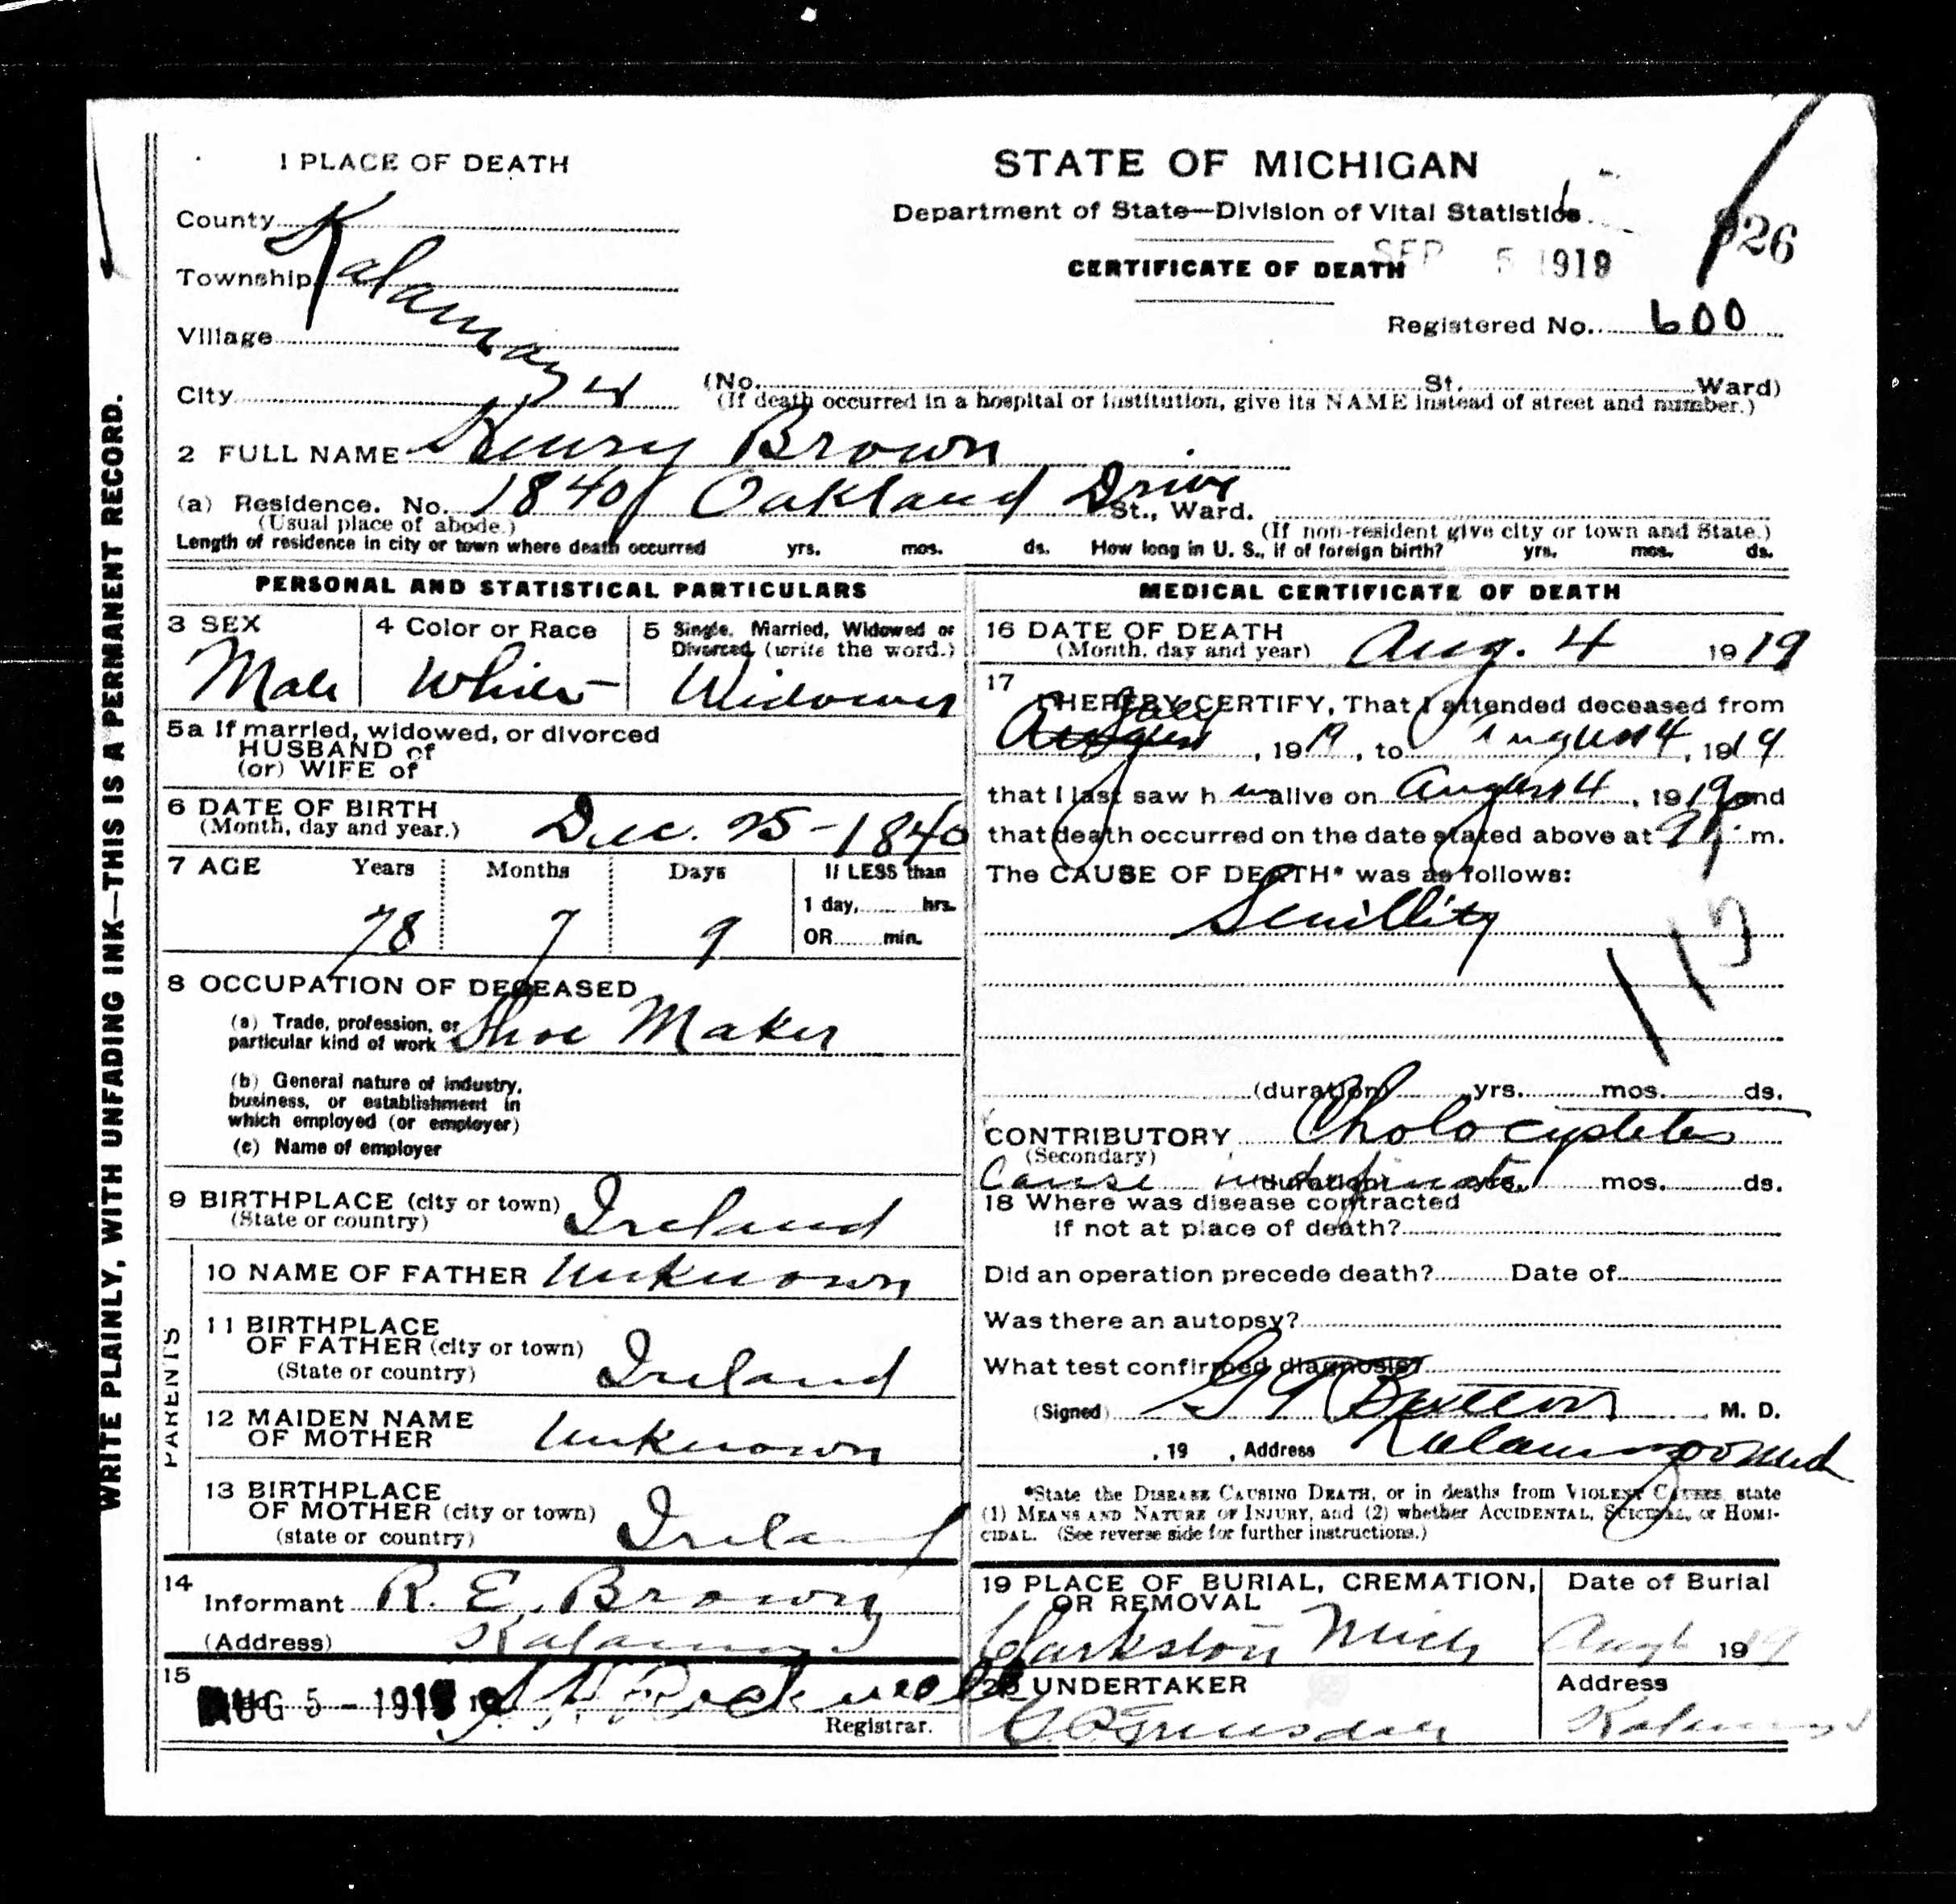 WRITE PLAINLY, WITH UNFADING INK—THIS IS A PERMANENT RECORD.
1 PLACE OF DEATH
County
Township
Village
City
Kalamazoo
STATE OF MICHIGAN
Department of State—Division of Vital Statistics
CERTIFICATE OF DEATH
SEP 5 1919
26
Registered No. 600
(No. St. Ward)
(If death occurred in a hospital or institution, give its NAME instead of street and number.)
2 FULL NAME Henry Brown
(a) Residence. No. 1840 Oakland Drive St., Ward.
(Usual place of abode.) (If non-resident give city or town and State.)
Length of residence in city or town where death occurred yrs. mos. ds. How long in U. S., if of foreign birth? yrs. mos. ds.
PERSONAL AND STATISTICAL PARTICULARS
3 SEX
Male
4 Color or Race
White
5 Single, Married, Widowed or
Divorced (write the word.)
Widower
5a If married, widowed, or divorced
HUSBAND of
(or) WIFE of
6 DATE OF BIRTH
(Month, day and year.) Dec. 25-1840
7 AGE Years Months Days If LESS than
1 day, hrs.
OR min.
78 7 9
8 OCCUPATION OF DECEASED
(a) Trade, profession, or
particular kind of work Shoe Maker
(b) General nature of industry,
business, or establishment in
which employed (or employer)
(c) Name of employer
9 BIRTHPLACE (city or town)
(State or country) Ireland
PARENTS
10 NAME OF FATHER Unknown
11 BIRTHPLACE
OF FATHER (city or town)
(State or country) Ireland
12 MAIDEN NAME
OF MOTHER Unknown
13 BIRTHPLACE
OF MOTHER (city or town)
(state or country) Ireland
14
Informant R. E. Brown
(Address) Kalamazoo
15
AUG 5 - 1919 Rockwell
Registrar.
MEDICAL CERTIFICATE OF DEATH
16 DATE OF DEATH
(Month, day and year) Aug. 4 1919
17
I HEREBY CERTIFY, That I attended deceased from
July , 1919, to August 4, 1919
that I last saw h im alive on August 4, 1919 and
that death occurred on the date stated above at 9 m.
The CAUSE OF DEATH* was as follows:
Senillity
(duration) yrs. mos. ds.
CONTRIBUTORY
(Secondary)
Cause (duration) yrs. mos. ds.
18 Where was disease contracted
if not at place of death?
Did an operation precede death? Date of
Was there an autopsy?
What test confirmed diagnosis?
(Signed) M. D.
, 19 , Address Kalamazoo Mich
*State the DISEASE CAUSING DEATH, or in deaths from VIOLENT CAUSES, state
(1) MEANS AND NATURE OF INJURY, and (2) whether ACCIDENTAL, SUICIDAL, or HOMI-
CIDAL. (See reverse side for further instructions.)
19 PLACE OF BURIAL, CREMATION,
OR REMOVAL
Clarkston Mich
Date of Burial
Aug 1919
20 UNDERTAKER
Address
Kalamazoo